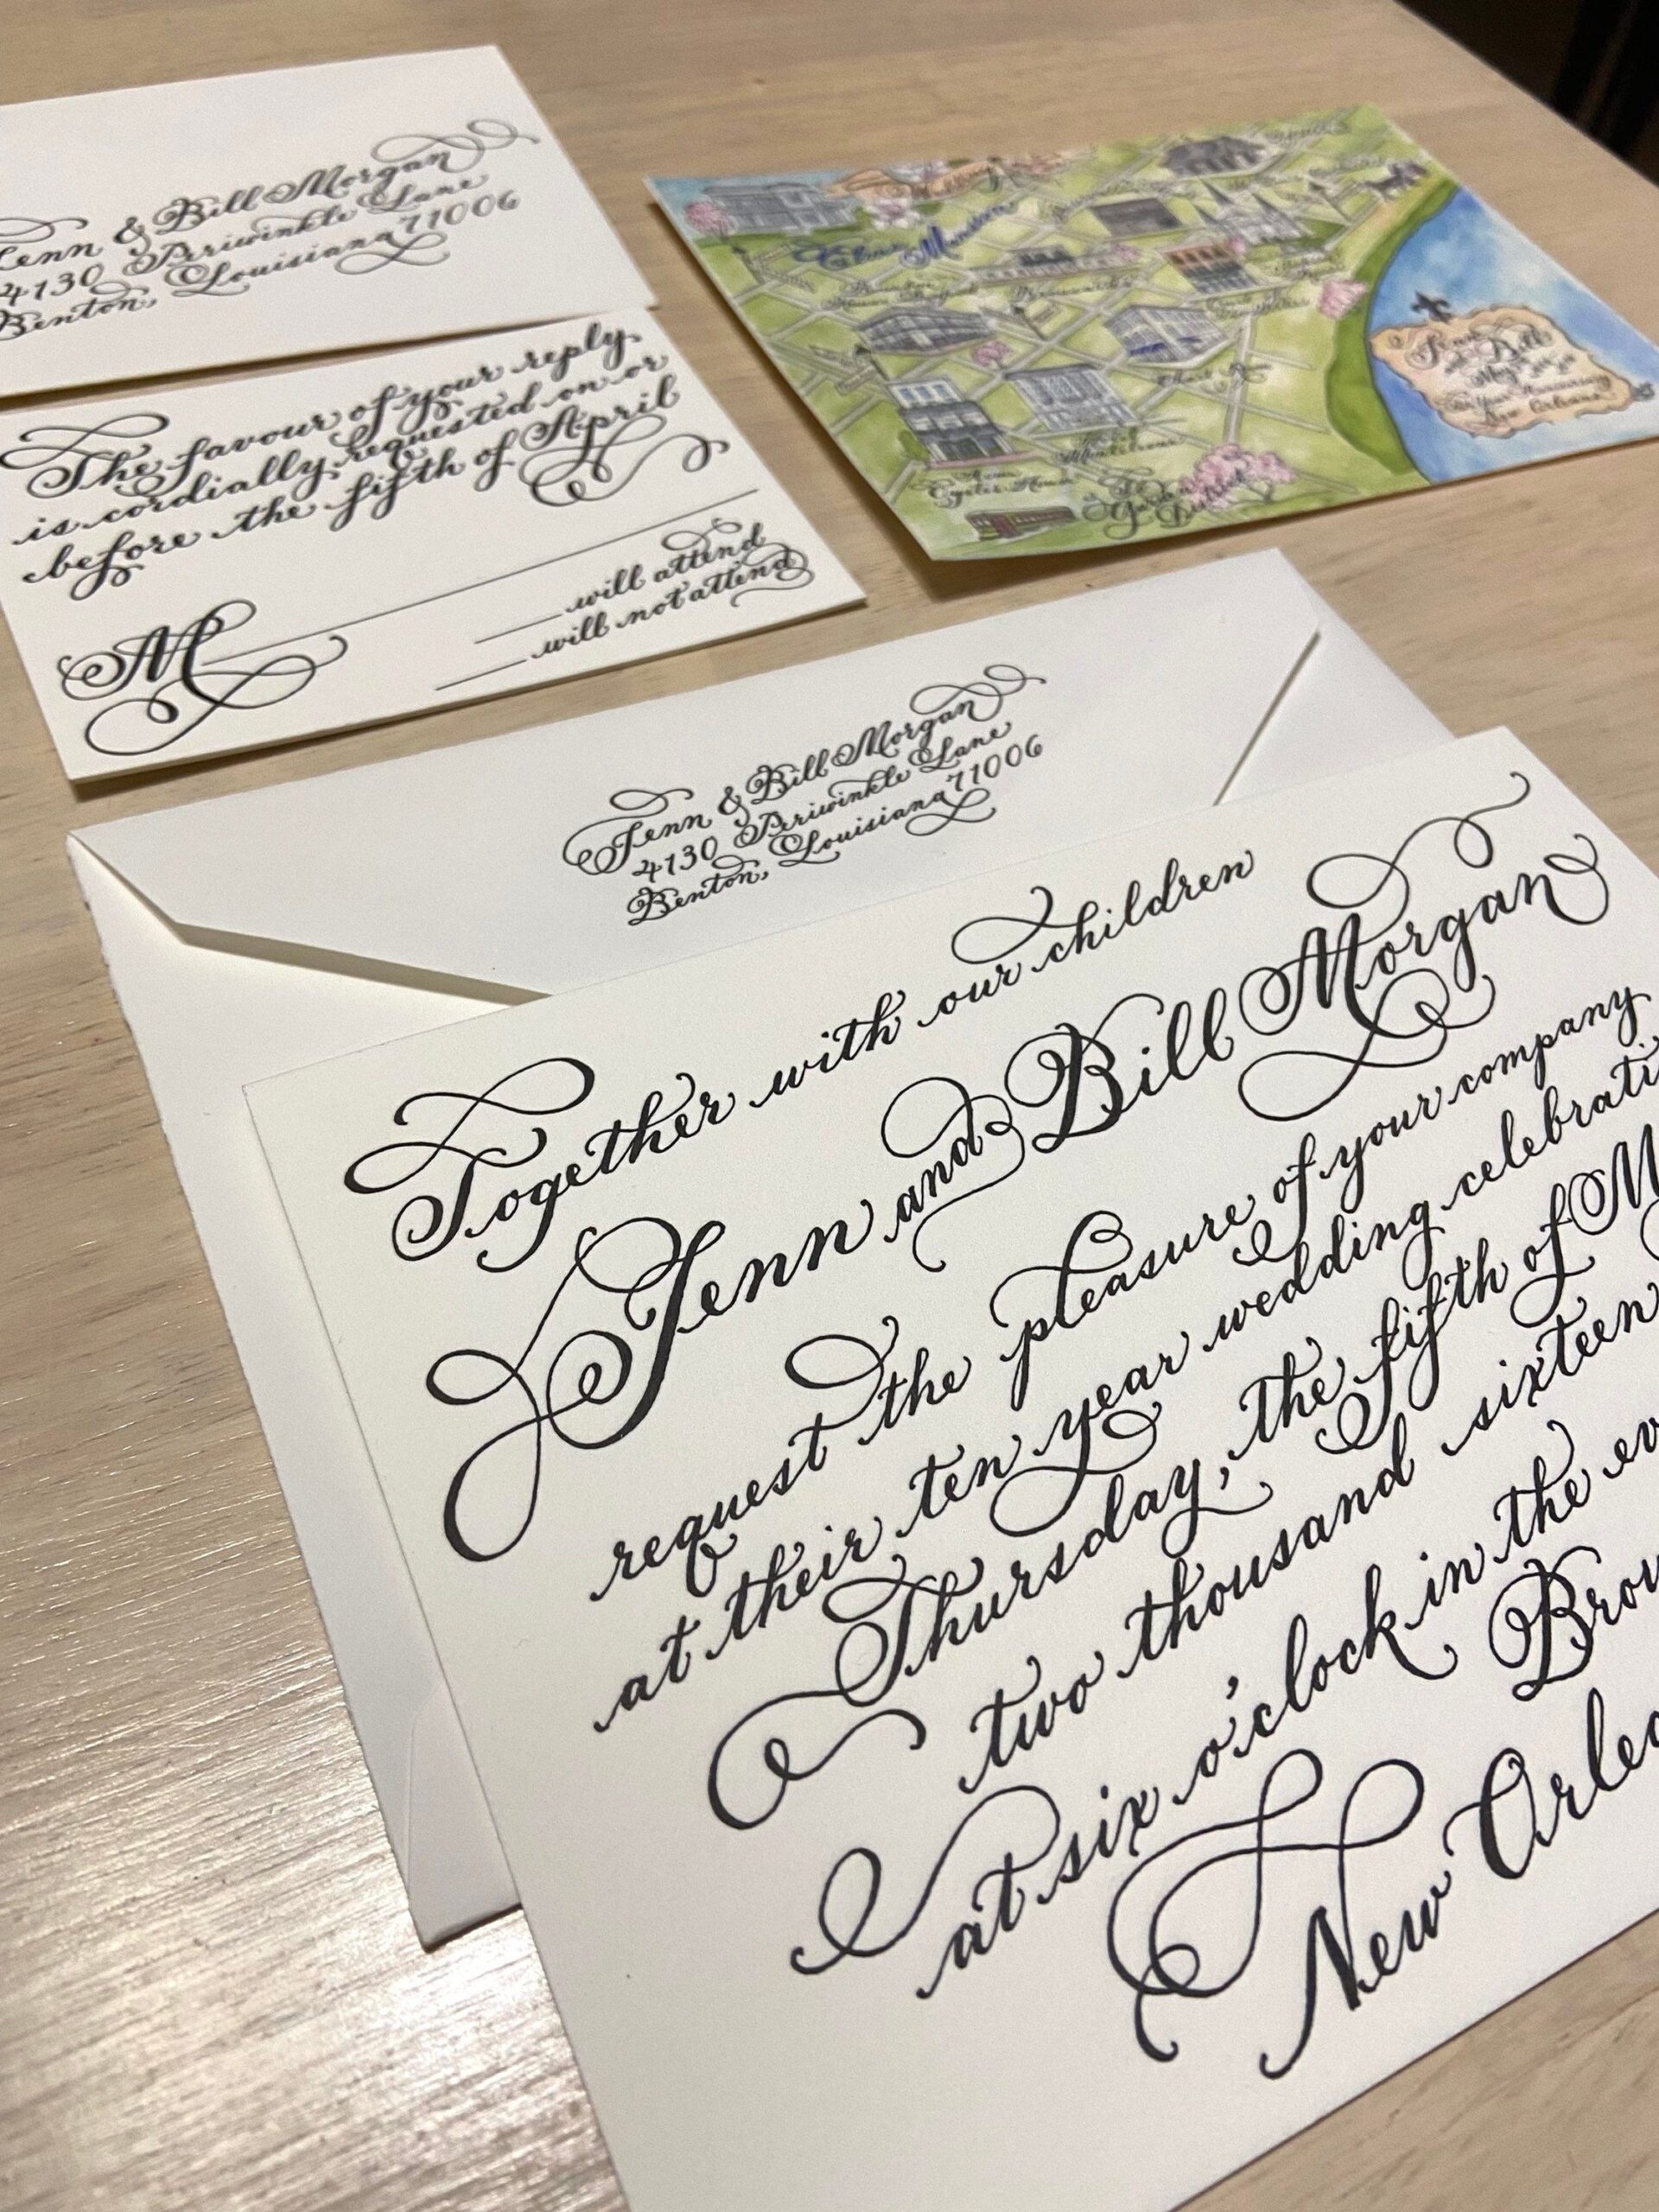 Jenn & Bill Morgan
4130 Periwinkle Lane
Benton, Louisiana 71006
The favour of your reply
is cordially requested on or
before the fifth of April
M
will attend
will not attend
Jenn & Bill Morgan
4130 Periwinkle Lane
Benton, Louisiana 71006
Together with our children
Jenn and Bill Morgan
request the pleasure of your company
at their ten year wedding celebrati
Thursday, the fifth of M
two thousand sixteen
at six o'clock in the ev
Brou
New Orlea
Hotel
Monteleone
Acme
Oyster House
Garden
District
New Orleans